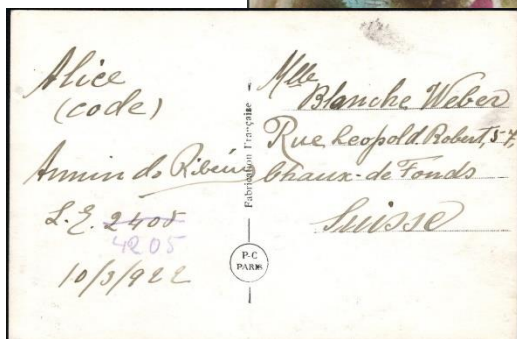 Alice
(code)
Armindo Ribeiro
L.E. 2400
4205
10/3/922
Fabrication Française
P-C
PARIS
Mlle
Blanche Weber
Rue Leopold Robert, 57,
Chaux-de-Fonds
Suisse